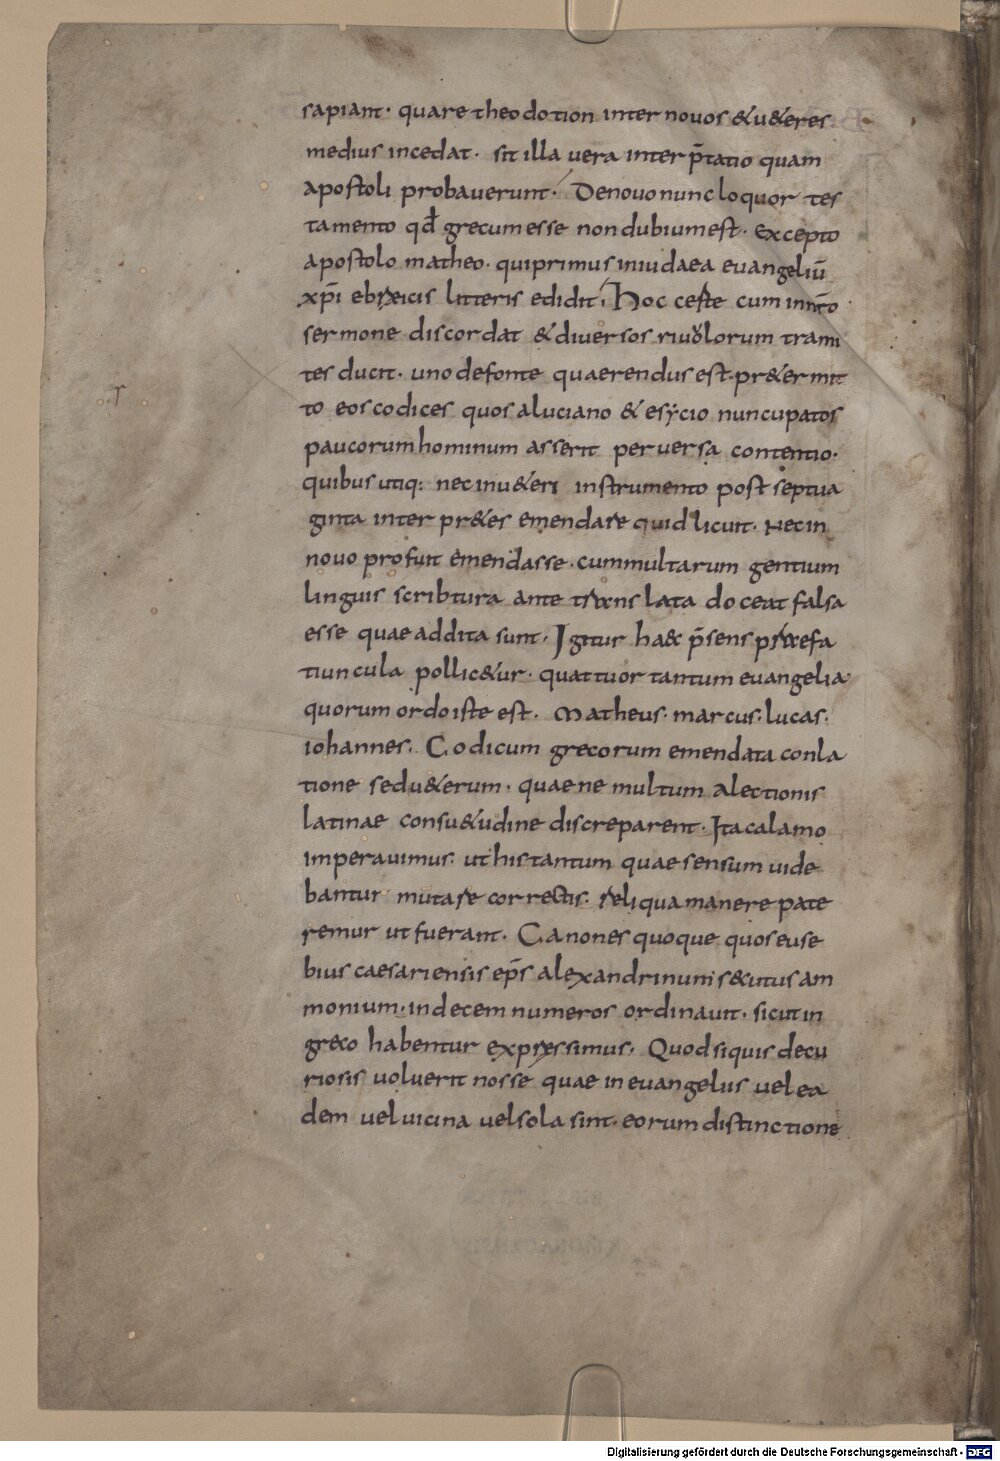 sapiant· quare theodotion inter nouos &u&eres
medius incedat· sit illa uera interp̄tatio quam
apostoli probauerunt· De nouo nunc loquor tes
tamento qd̄ grecum esse non dubium est· Excepto
apostolo matheo· qui primus in iudaea euangeliū
xp̄i ebraicis litteris edidit· Hoc certe cum in nr̄o
sermone discordat & diuersos riuulorum trami
tes ducit· uno de fonte quaerendus est· pr&ermit
to eos codices quos a luciano & esycio nuncupatos
paucorum hominum asserit peruersa contentio·
quibus utiq: nec in u&eri instrumento post septua
ginta interpr&es emendare quid licuit· Nec in
nouo profuit emendasse· cum multarum gentium
linguis scribtura ante translata doceat falsa
esse quae addita sunt· Igitur haec p̄sens praefa
tiuncula pollic&ur· quattuor tantum euangelia
quorum ordo iste est· Matheus· marcus· lucas·
iohannes· Codicum grecorum emendata conla
tione sed u&erum· quae ne multum a lectionis
latinae consu&udine discreparent· Ita calamo
imperauimus· ut his tantum quae sensum uide
bantur mutare correctis· reliqua manere pate
remur ut fuerant· Canones quoque quos euse
bius caesariensis ep̄s alexandrinum s&utus am
monium· in decem numeros ordinauit· sicut in
greco habentur expressimus· Quod si quis de cu
riosis uoluerit nosse quae in euangeliis uel ea
dem uel uicina uel sola sint· eorum distinctione
Digitalisierung gefördert durch die Deutsche Forschungsgemeinschaft - DFG